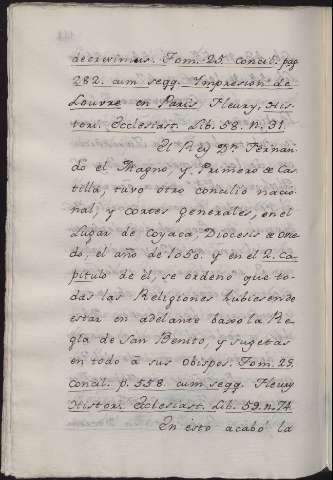 decrivimus. Tom. 25. Concil. pag
282. cum segg. Impresion de
Louvre en Paris Fleury, His-
tori. Ecclesiast. Lib. 58. n. 31.
El Rey Dn Fernan-
do el Magno, y Primero de Cas-
tilla, tuvo otro concilio nacio-
nal, y cortes generales, en el
Lugar de Coyaca, Diocesis de Ovie-
do, el año de 1050. y en el 2. Ca-
pitulo de èl, se ordenò que to-
das las Religiones hubiesen de
estar en adelante baxo la Re-
gla de San Benito, y sugetas
en todo à sus obispos. Tom. 25.
Concil. p. 558. cum segg. Fleury
Histor. Ecclesiast. Lib. 59. n. 74.
En esto acabó la